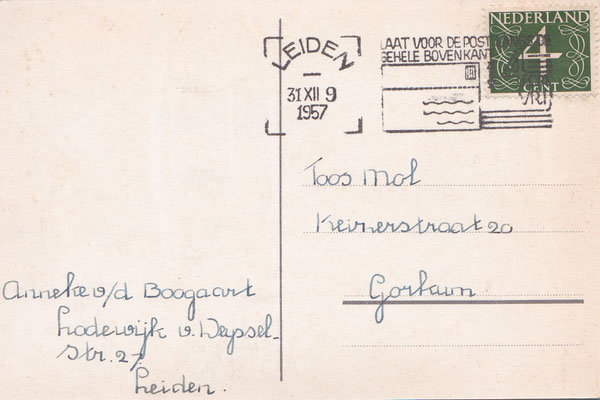 NEDERLAND
4
CENT
LEIDEN
31 XII 9
1957
LAAT VOOR DE POST
GEHELE BOVENKANT
VRIJ
Toos Mol
Keizerstraat 20
Gorkum
Anneke v/d Boogaart
Lodewijk v. Deyssel-
Str. 27
Leiden.